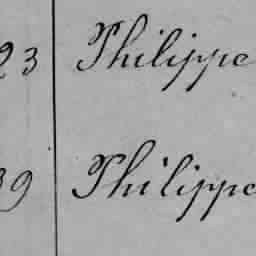 23 Philippe
39 Philippe